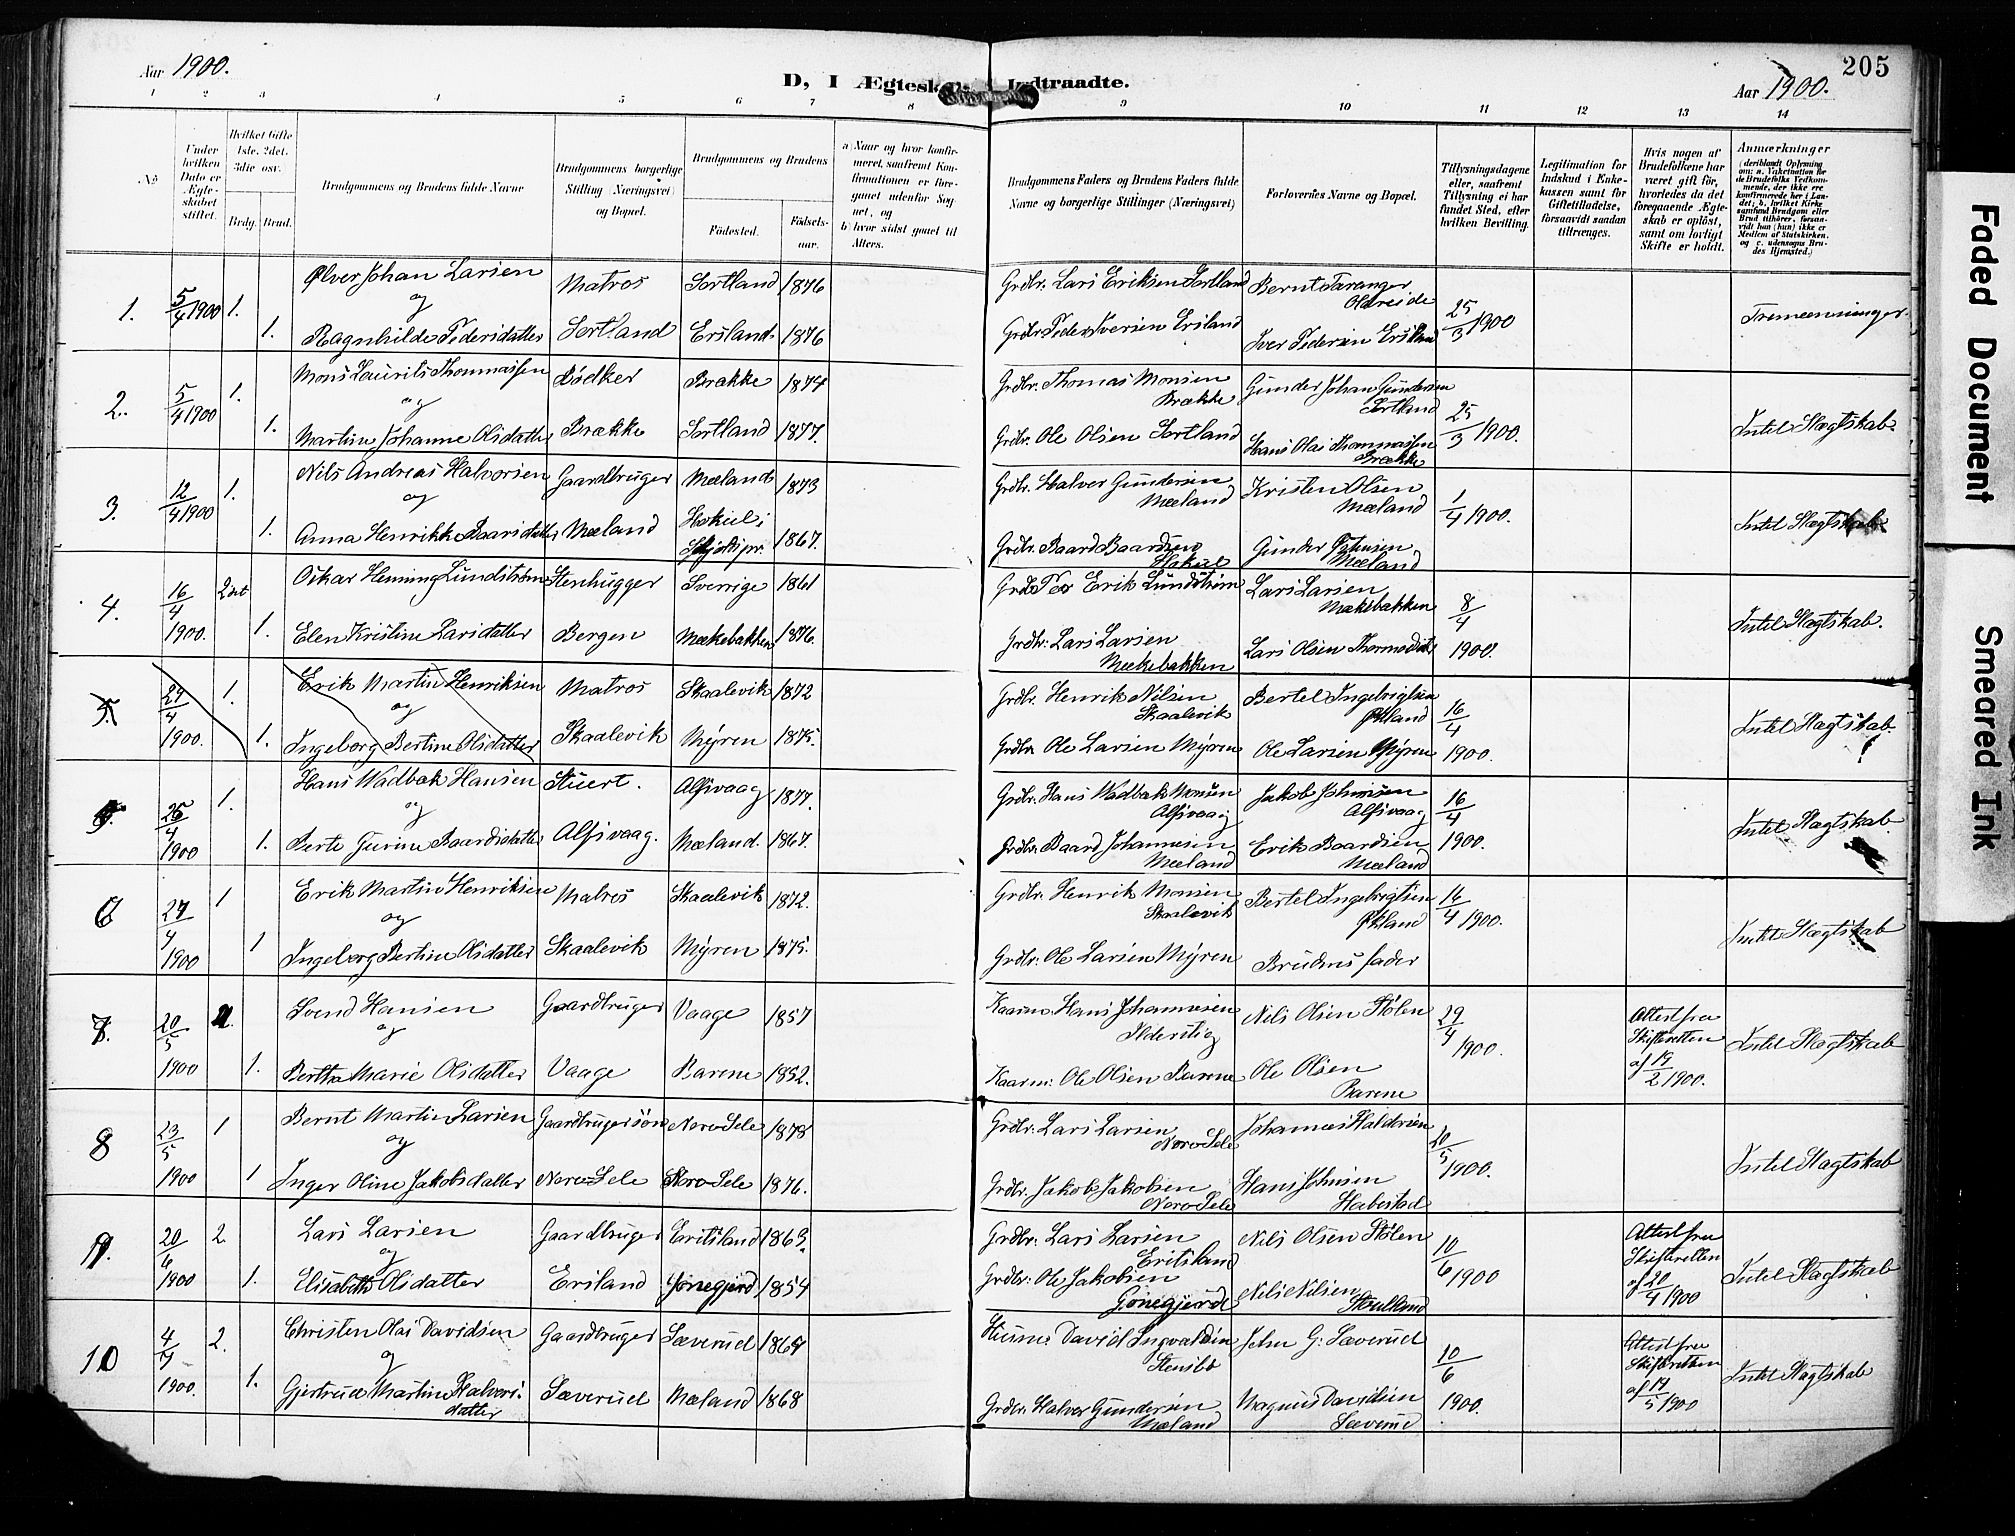 Aar 1900.
D, I Ægtesk Indtraadte.
Aar 1900.
205
1 2 3 4 5 6 7 8 9 10 11 12 13 14
No
Under hvilken Dato er Ægteskabet stiftet.
Hvilket Gifte 1ste. 2det. 3die osv.
Brdg. Brud.
Brudgommens og Brudens fulde Navne
Brudgommens borgerlige Stilling (Næringsvei) og Bopæl.
Brudgommens og Brudens
Fødested.
Fødselsaar.
a) Naar og hvor konfirmeret, saafremt Konfirmationen er foregaaet udenfor Sognet, og
b) hvor sidst gaaet til Alters.
Brudgommens Faders og Brudens Faders fulde Navne og borgerlige Stillinger (Næringsvei)
Forlovernes Navne og Bopæl.
Tillysningsdagene eller, saafremt Tillysning ei har fundet Sted, efter hvilken Bevilling.
Legitimation for Indskud i Enkekassen samt for Giftetilladelse, forsaavidt saadan tiltrænges.
Hvis nogen af Brudefolkene har været gift før, hvorledes da det foregaaende Ægteskab er opløst, samt om lovligt Skifte er holdt.
Anmærkninger (deriblandt Oplysning om: a. Vakcination for de Brudefolks Vedkommende, der ikke ere konfirmerede her i Landet; b. hvilket Kirkesamfund Brudgom eller Brud tilhører, forsaavidt han (hun) ikke er Medlem af Statskirken. og c. udensogns Brudes Hjemsted.)
1. 5/4 1900 1. Ølver Johan Larsen Matros Sortland 1876 Grdbr. Lars Eriksen Sortland Bernt Taranger Oldreide 25/3 1900 Tremenninger.
og
1. Ragnhilde Pedersdatter Sortland Ersland 1876 Grdbr. Peder Iversen Ersland Iver Pedersen Ersland
2. 5/4 1900 1. Mons Laurits Thommassen Bødker Brække 1874 Grdbr. Thomas Monsen Brække Gunder Johan Gundersen Sortland 25/3 1900. Intet Slægtskab.
og
1. Martine Johanne Olsdatter Brække Sortland 1877. Grdbr. Ole Olsen Sortland Hans Olai Thommassen Brække
3. 12/4 1900 1. Nils Andreas Halvorsen Gaardbruger Mæland 1873 Grdbr. Halvor Gundersen Mæland Kristen Olsen Mæland 1/4 1900. Intet Slægtskab
og
1. Anna Henrikke Baardsdatter Mæland 1867. Grdbr. Baard Baardsen Gunder Johnsen Mæland
4. 16/4 1900. 2det Oskar Henning Lundström Stenhugger Sverrige 1861 Per Erik Lundström Lars Larsen Mækebakken 8/4 1900. Intet Slægtskab.
1. Elen Kristine Larsdatter Bergen Mækebakken 1876. Grdbr. Lars Larsen Mækebakken Lars Olsen
5. 27/4 1900. 1. Erik Martin Henriksen Matros Skaalevik 1872 Grdbr. Henrik Nilsen Skaalevik Bertel Ingebrigtsen Økland 16/4 1900. Intet Slægtskab.
og
1. Ingeborg Bertine Olsdatter Skaalevik Myren 1875. Grdbr. Ole Larsen Myren Ole Larsen Myren
5. 26/4 1900 1. Hans Wadbak Hansen Stuert. Alfsvaag 1877. Grdbr. Hans Wadbak Monsen Alfsvaag Jakob Johnsen Alfsvaag 16/4 1900. Intet Slægtskab.
og
1. Berte Gurine Baardsdatter Alfsvaag. Mæland. 1867. Grdbr. Baard Johannesen Mæland Erik Baardsen Mæland
6 27/4 1900 1 Erik Martin Henriksen Matros Skaalevik 1872. Grdbr. Henrik Monsen Skaalevik Bertel Ingebrigtsen Økland 16/4 1900. Intet Slægtskab
og
1 Ingeborg Bertine Olsdatter Skaalevik Myren 1875. Grdbr. Ole Larsen Myren Brudens fader
7. 20/5 1900 2. Svend Hansen Gaardbruger Vaage 1857 Kaarm. Hans Johannesen Nils Olsen Stølen 29/4 1900. Attest fra Skifteretten af 19/2 1900. Intet Slægtskab
og
1. Bertha Marie Olsdatter Vaage Barene 1852. Kaarm: Ole Olsen Barene Ole Olsen Barene
8 23/5 1900 1 Bernt Martin Larsen Gaardbrugersøn Nore Sele 1878 Grdbr. Lars Larsen Nore Sele Johannes Haldorsen 20/5 1900. Intet Slægtskab
og
1 Inger Oline Jakobsdatter Nore Sele Store Sele 1876. Grdbr. Jakob Jakobsen Nore Sele Hans Johnsen Habestad
9. 20/6 1900 2. Lars Larsen Gaardbruger Eritsland 1863. Grdbr. Lars Larsen Eritsland Nils Olsen Stølen 10/6 1900 Attest fra Skifteretten af 20/4 1900 Intet Slægtskab
og
1. Elisabeth Olsdatter Ersland Gönegjerd 1854 Grdbr. Ole Jakobsen Gönegjerde Nils Nilsen
10 4/7 1900. 2. Christen Olai Davidsen Gaardbruger Sæverud 1869 Husm. David Ingvaldsen Stensbø John G. Sæverud 10/6 1900. Attest fra Skifteretten af 19/5 1900 Intet Slægtskab
og
1. Gjertrud Martine Halvorsdatter Sæverud Mæland 1868 Grdbr. Halvor Gundersen Mæland Magnus Davidsen Sæverud
Faded Document
Smeared Ink